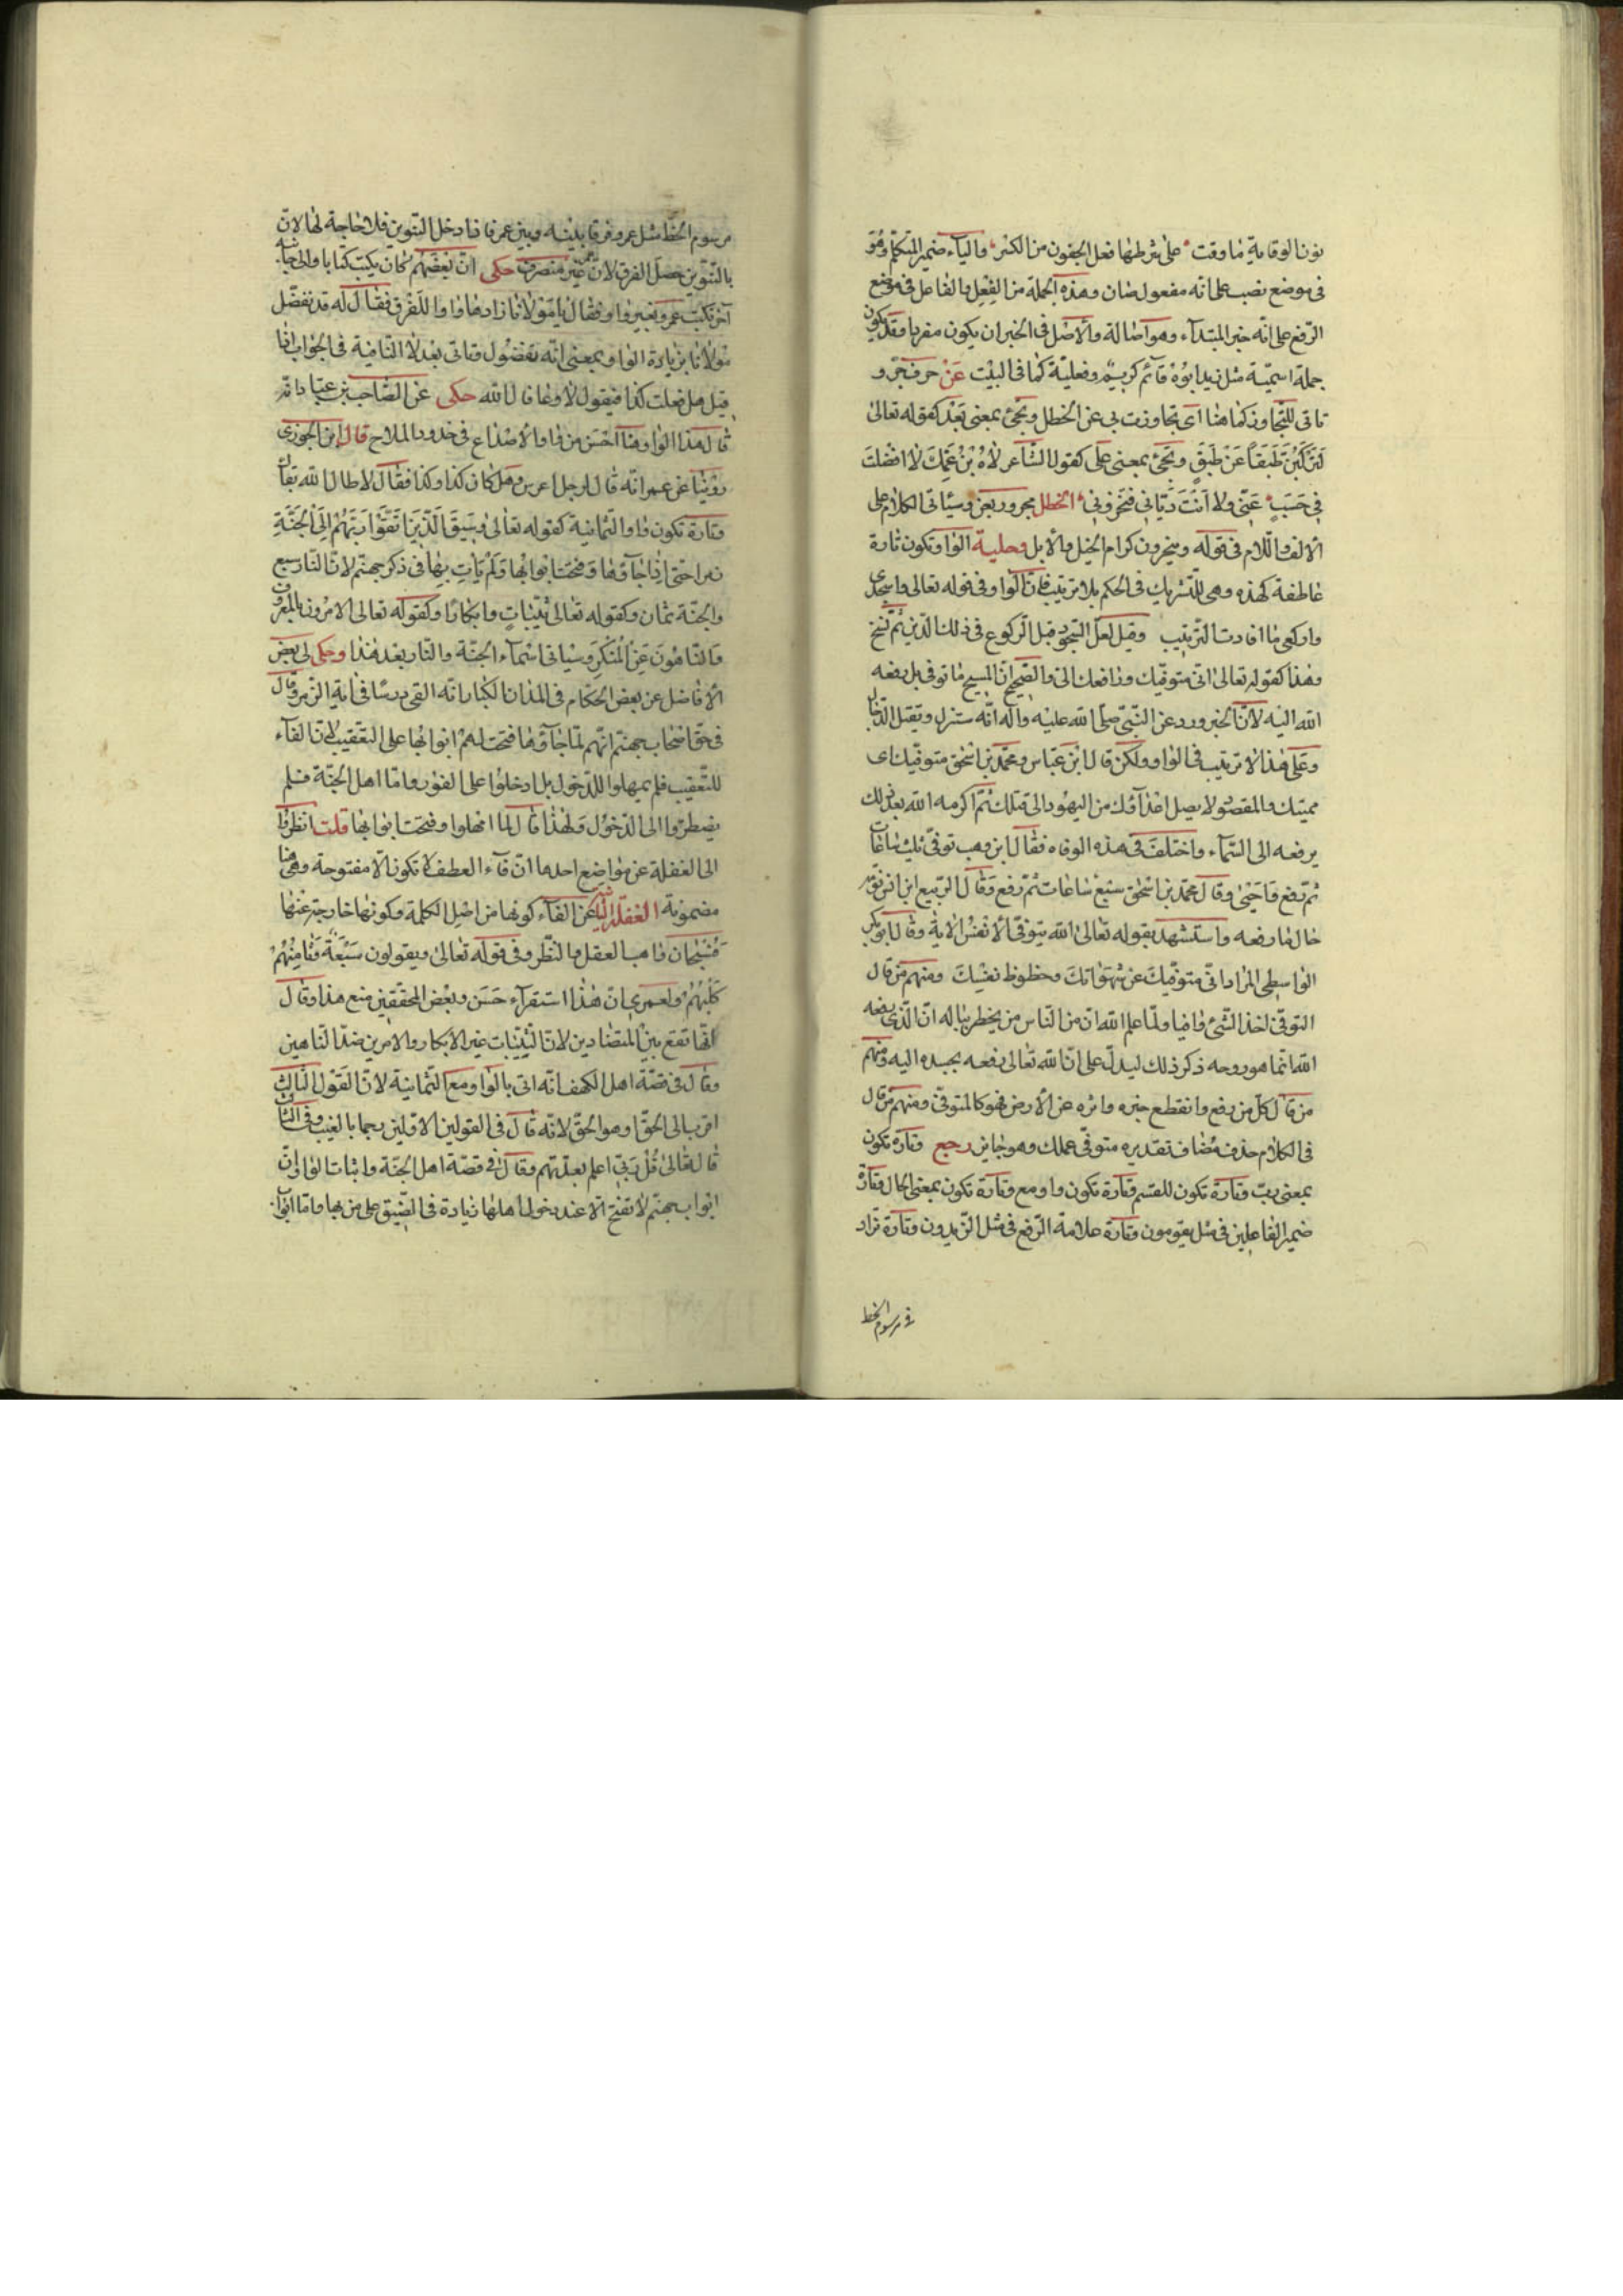 نون الوقاية ما وقت على شرطها فعل الجفون من الكسر والياء ضمير المتكلم وهو
فى موضع نصب على انه مفعول صان وهذه الجملة من الفعل والفاعل فى موضع
الرّفع على انّه خبر المبتدآء وهو اصالة والاصل فى الخبر ان يكون مفردا وقد يكون
جملة اسميّة مثل زيد ابوُهُ قآئم كريم وفعليّة كما فى البيْت عَنْ حرف جَرّ و
تاتى للتجاوز كما هنا اى تجاوزت بى عن الخطل وتجئ بمعنى بَعْد كقوله تعالى
لتركَبُنَّ طَبَقاً عَنْ طَبَقٍ وتجئ بمعنى على كقول الشّاعر لاهِ ابْنُ عَمِّكَ لا افضلتَ
فى حَسَبٍ عَنّى ولا اَنْتَ دَيّانى فتخزونى الخطل مجرور بعن وسيأتى الكلام على
الالف واللّام فى قوله وينحرون كرام الخيل والابل وحلية الواو تكون تارة
عاطفة كهذه وهى للتّشريك فى الحكم بلا ترتيب فانّ الواو فى قوله تعالى واسجدى
واركعى ما افادت الترتيب وقيل لعلّ السّجود قبل الرّكوع فى ذلك الدّين ثمّ نُسخ
وهذا كقوله تعالى انّى متوفّيك ورافعك الىّ والصّحيح انّ المسيح ما توفى بل رفعه
الله اليه لانّ الخبر ورد عن النّبىّ صلّى الله عليْه وآله انّه ستنزل ويقتل الدّجّال
وعلى هذا لا ترتيب فى الواو ولكن قال ابْن عبّاس ومحمّد بن اسْحٰق متوفّيك اى
مميتك والمقصود لا يصل اعدآؤك من اليهود الى قتلك ثمّ اكرمه الله بعد ذلك
برفعه الى السّمآء واختلف فى هذه الوفاه فقال ابن وهب توفّى ثلث ساعات
ثمّ رفع فاحيى وقال محمّد بن اسْحٰق سبْع ساعات ثمّ رفع وقال الرّبيع ابن انس توفّيه
حال ما رفعه واستشهد بقوله تعالى الله يتوفّى الانفس الاية وقال ابو بكر
الواسطى المراد انّى متوفّيكَ عن شهواتكَ وحظوظ نفسِكَ ومنهم من قال
التوفّى اخذ الشّئ وافيا ولمّا علم الله ان من النّاس من يخطر بباله انّ الّذى رفعه
الله انّما هو روحه ذكر ذلك ليدلّ على انّ الله تعالى رفعه بجسده اليه ومنهم
من قال كلّ من رفع وانقطع خبره واثره عن الارض فهو كالمتوفّى ومنهم من قال
فى الكلام حذف مُضاف تقديره متوفّى عملك وهو جايز رجع وتارة تكون
بمعنى ربّ وتارة تكون للقسم وتارة تكون واو مع وتارة تكون بمعنى الحال وتارة
ضمير الفاعلين فى مثل يقومون وتارة علامة الرّفع فى مثل الزّيدون وتارة تزاد
فى مرسوم الخط
مرسوم الخطّ مثل عمرو فرقا بينه وبين عمر فاذا دخل التّنوين فلا حاجة لها لانّ
بالتّنوين حصل الفرق لانّ عمر غير منصرف حكى انّ بعضهم كان يكتب كتابا والى جانبه
آخر فكتب عمرو بغير واو فقال يا مولانا زادها واوا للفرق فقال له قد تفضّل
مولانا بزيادة الواو بمعنى انّه تفضُول وتاتى بعد لا النّافية فى الجواب اذا
قيل هل فعلت كذا فيقول لا وعافاك الله حكى عن الصّاحب بن عبّاد انّه
قال هذا الواو هنا اَحْسَن من واو الاصداغ فى خدود الملاح قال ابن الجوزى
روّينا عن عمر انّه قال لرجل اعرس وهل كان كذا وكذا فقال لا طال الله بقآك
وتارة تكون واو الثّمانية كقوله تعالى وَسيقَ الَّذينَ اتَّقَوْا رَبَّهُمْ اِلَى الْجَنَّةِ
زمرا حتّى اِذا جآؤها وَفُتِحَتْ ابْوابُها ولم يَأتِ بِها فى ذكر جهنّم لانّ النّار سبع
والجنّة ثمان وكقوله تعالى ثيّباتٍ وابكاراً وكقوله تعالى الآمرون بالمعروف
وَالنّاهُونَ عَنِ الْمُنْكَرِ وسياتى اسْمآء الجنّة والنّار بعد هذا وحكى لى بعض
الافاضل عن بعض الحكّام فى المدن الكبار انّه القى درسًا فى اية الزّمر وقال
فى حقّ اصْحاب جهنّم انّهم لمّا جآؤها فتحت لهم ابوابها على التعقيب لانّ الفآء
للتّعقيب فلم يمهلوا للدّخول بل ادخلوا على الفور وامّا اهل الجنّة فلم
يضطرّوا الى الدّخول ولهذا قال لما امهلوا وفتحت ابوابها قلت انظروا
الى الغفلة عن مواضع احدها انّ فآء العطف لا تكون الّا مفتوحة وهى هنا
مضمومة الغفلة الثّانية عن الفآء كونها من اصْل الكلمة وكونها خارجة عنها
فسُبْحان واهب العقل والنّظر وفى قوله تعالى ويقولون سَبْعَةٌ وَثامِنُهُمْ
كَلْبُهُمْ ولعمرى انّ هذا استقرآء حَسَن وبعْض المحقّقين منع هذا وقال
انّها تقع بيْن المتضادّين لانّ الثّيّبات غير الابكار والآمرين ضدّ النّاهين
وقال فى قصّة اهل الكهف انّه اتى بالواو مع الثّمانية لانّ القوْل الثّالث
اقرب الى الحقّ او هو الحقّ لانّه قال فى القولين الاوّلين رجما بالغيب وفى الثّالث
قال تعالى قُلْ رَبّى اعلم بعدّتهم وقال فى قصّة اهل الجنّة واثبات الواو انّ
ابواب جهنّم لا تفتح الّا عند دخول اهلها زيادة فى الضّيق على من بها وامّا ابواب